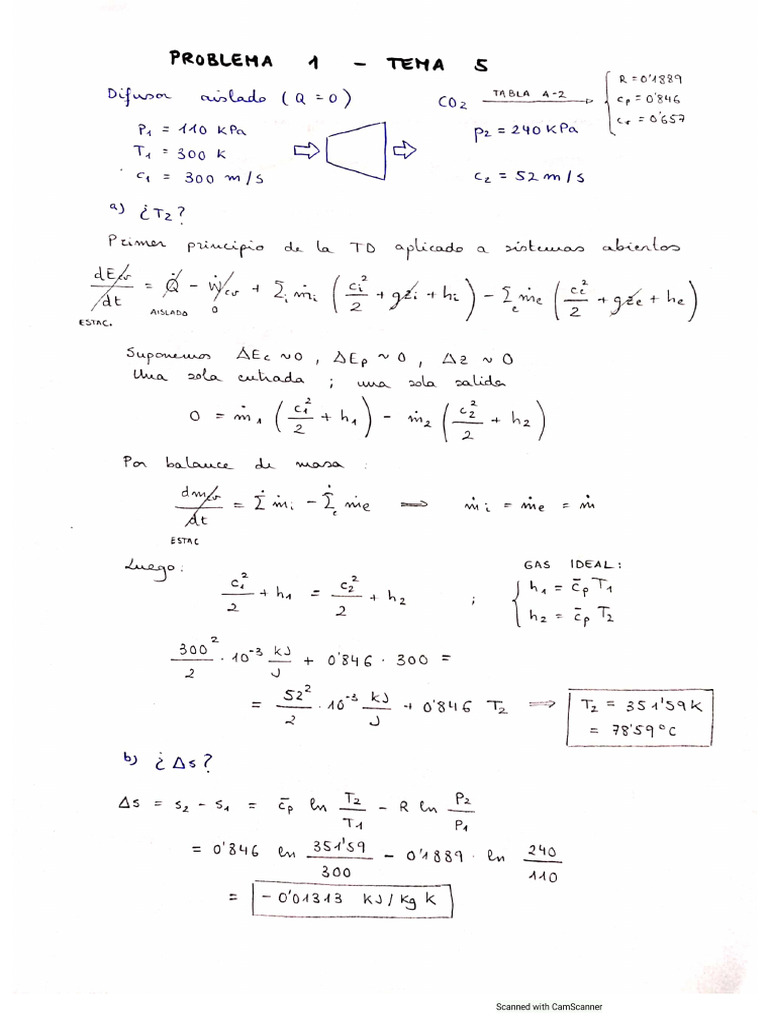 PROBLEMA 1 - TEMA 5
Difusor aislado (Q = 0)
CO2 TABLA A-2 R = 0'1889
cp = 0'846
cv = 0'657
P1 = 110 KPa
T1 = 300 K
c1 = 300 m/s
P2 = 240 KPa
c2 = 52 m/s
a) ¿T2?
Primer principio de la TD aplicado a sistemas abiertos
dEcv/dt = Q̇ - Ẇcv + Σi ṁi (ci²/2 + gzi + hi) - Σe ṁe (ce²/2 + gze + he)
ESTAC. AISLADO 0
Suponemos ΔEc ~ 0, ΔEp ~ 0, Δz ~ 0
Una sola entrada ; una sola salida
0 = ṁ1 (c1²/2 + h1) - ṁ2 (c2²/2 + h2)
Por balance de masa :
dmcv/dt = Σi ṁi - Σe ṁe ⟹ ṁi = ṁe = ṁ
ESTAC
Luego: c1²/2 + h1 = c2²/2 + h2 ;
GAS IDEAL:
h1 = c̄p T1
h2 = c̄p T2
300²/2 · 10⁻³ kJ/J + 0'846 · 300 =
= 52²/2 · 10⁻³ kJ/J + 0'846 T2 ⟹ T2 = 351'59 K
= 78'59 °C
b) ¿Δs?
Δs = s2 - s1 = c̄p ln T2/T1 - R ln P2/P1
= 0'846 ln 351'59/300 - 0'1889 · ln 240/110
= -0'01313 KJ/Kg K
Scanned with CamScanner